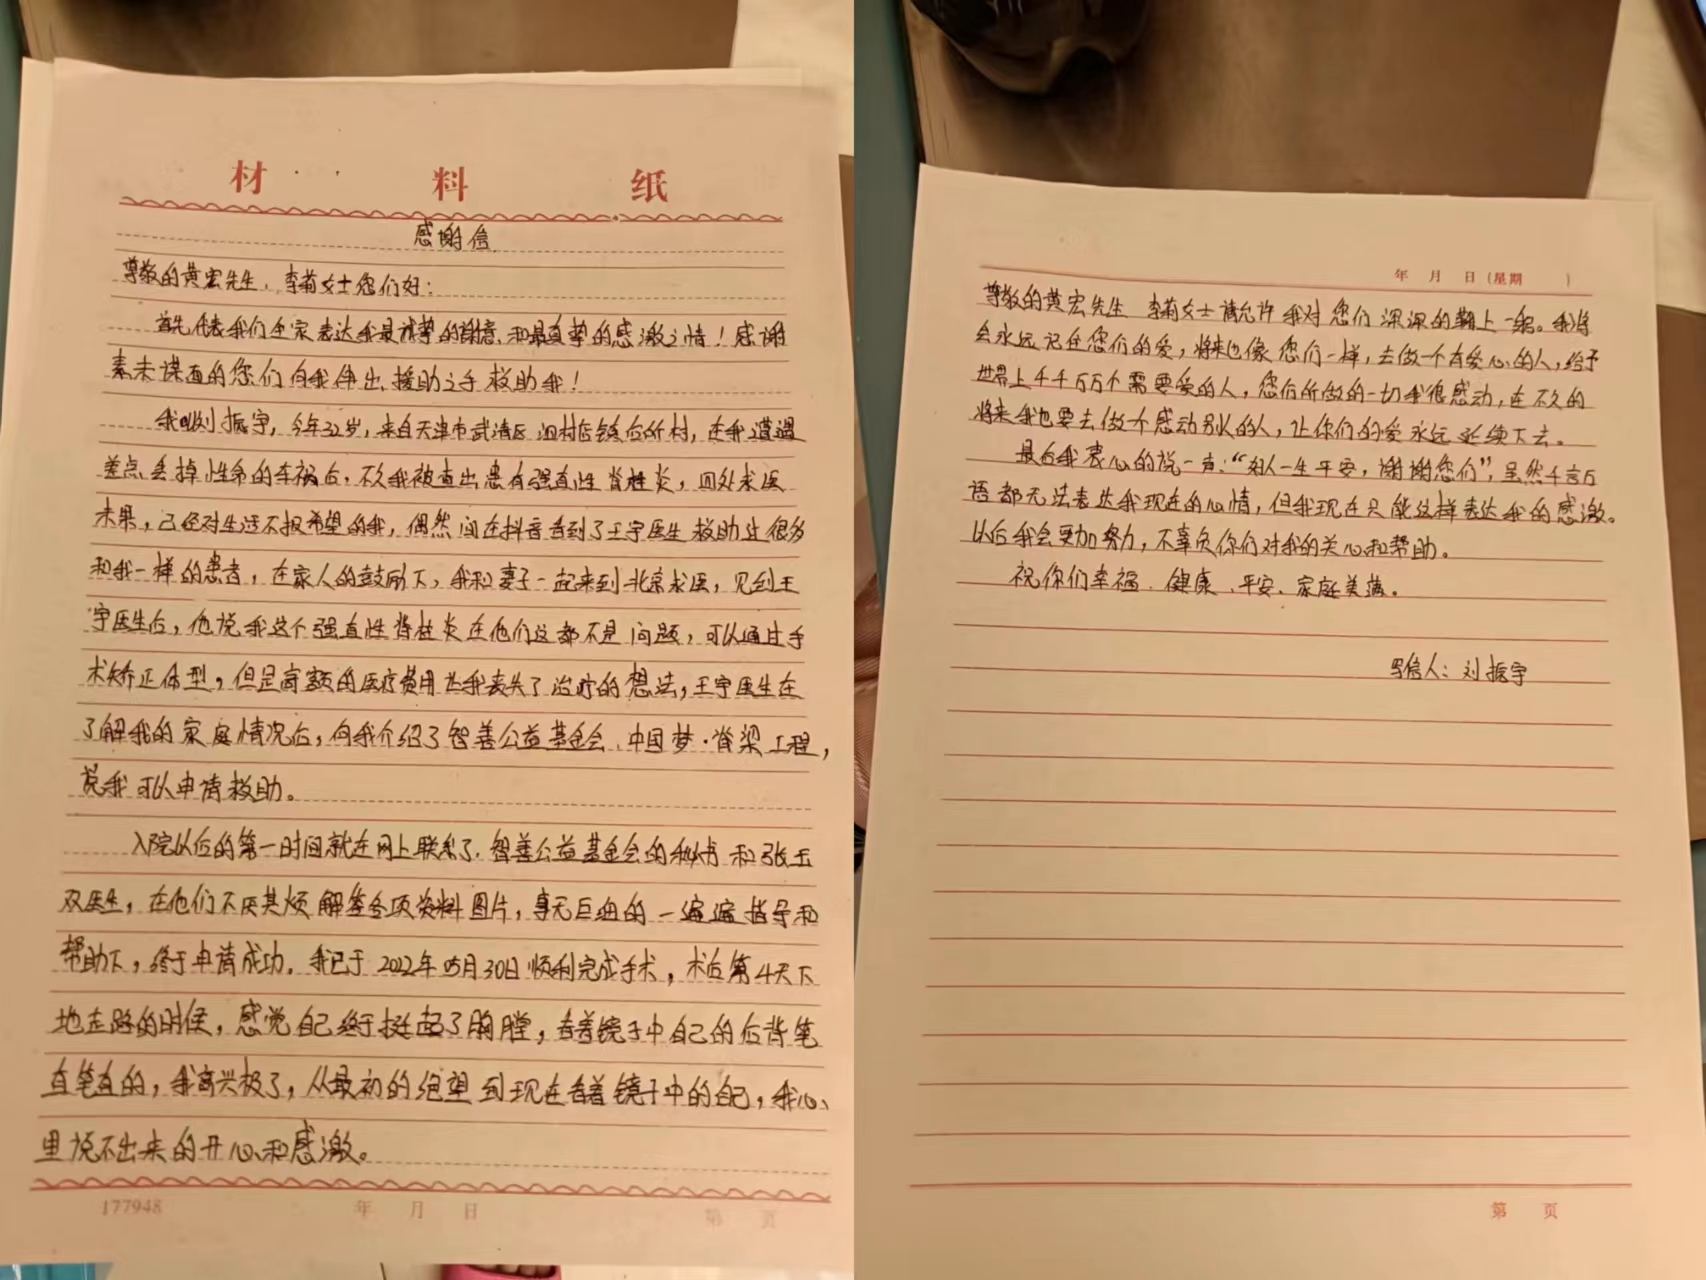 材料纸
感谢信
尊敬的黄宏先生、李莉女士您们好:
首先代表我们全家表达我最诚挚的谢意、和最真挚的感激之情!感谢
素未谋面的您们向我伸出援助之手救助我!
我叫刘振宇,今年32岁,来自天津市武清区泗村店镇后所村,在我遭遇
差点丢掉性命的车祸后,不久我被查出患有强直性脊柱炎,四处求医
未果,已经对生活不报希望的我,偶然间在抖音看到了王宇医生救助过很多
和我一样的患者,在家人的鼓励下,我和妻子一起来到北京求医,见到王
宇医生后,他说我这个强直性脊柱炎在他们这都不是问题,可以通过手
术矫正体型,但是高额的医疗费用让我丧失了治疗的想法,王宇医生在
了解我的家庭情况后,向我介绍了智善公益基金会、中国梦·脊梁工程,
说我可以申请救助。
入院以后的第一时间就在网上联系了、智善公益基金会的秘书和张玉
双医生,在他们不厌其烦解答各项资料图片,事无巨细的一遍遍指导和
帮助下,终于申请成功。我已于2022年05月30日顺利完成手术,术后第4天下
地走路的时候,感觉自己终于挺起了胸膛,看着镜子中自己的后背笔
直笔直的,我高兴极了,从最初的绝望到现在看着镜子中的自己,我心
里说不出来的开心和感激。
177948 年 月 日 第 页
年 月 日(星期 )
尊敬的黄宏先生 李莉女士请允许我对您们深深的鞠上一躬。我将
会永远记住您们的爱,将来也像您们一样,去做一个有爱心的人,给予
世界上千千万万个需要爱的人,您们所做的一切我很感动,在不久的
将来我也要去做个感动别人的人,让你们的爱永远延续下去。
最后我衷心的说一声:“好人一生平安,谢谢您们”,虽然千言万
语都无法表达我现在的心情,但我现在只能这样表达我的感激。
以后我会更加努力,不辜负你们对我的关心和帮助。
祝你们幸福、健康、平安、家庭美满。
写信人:刘振宇
第 页